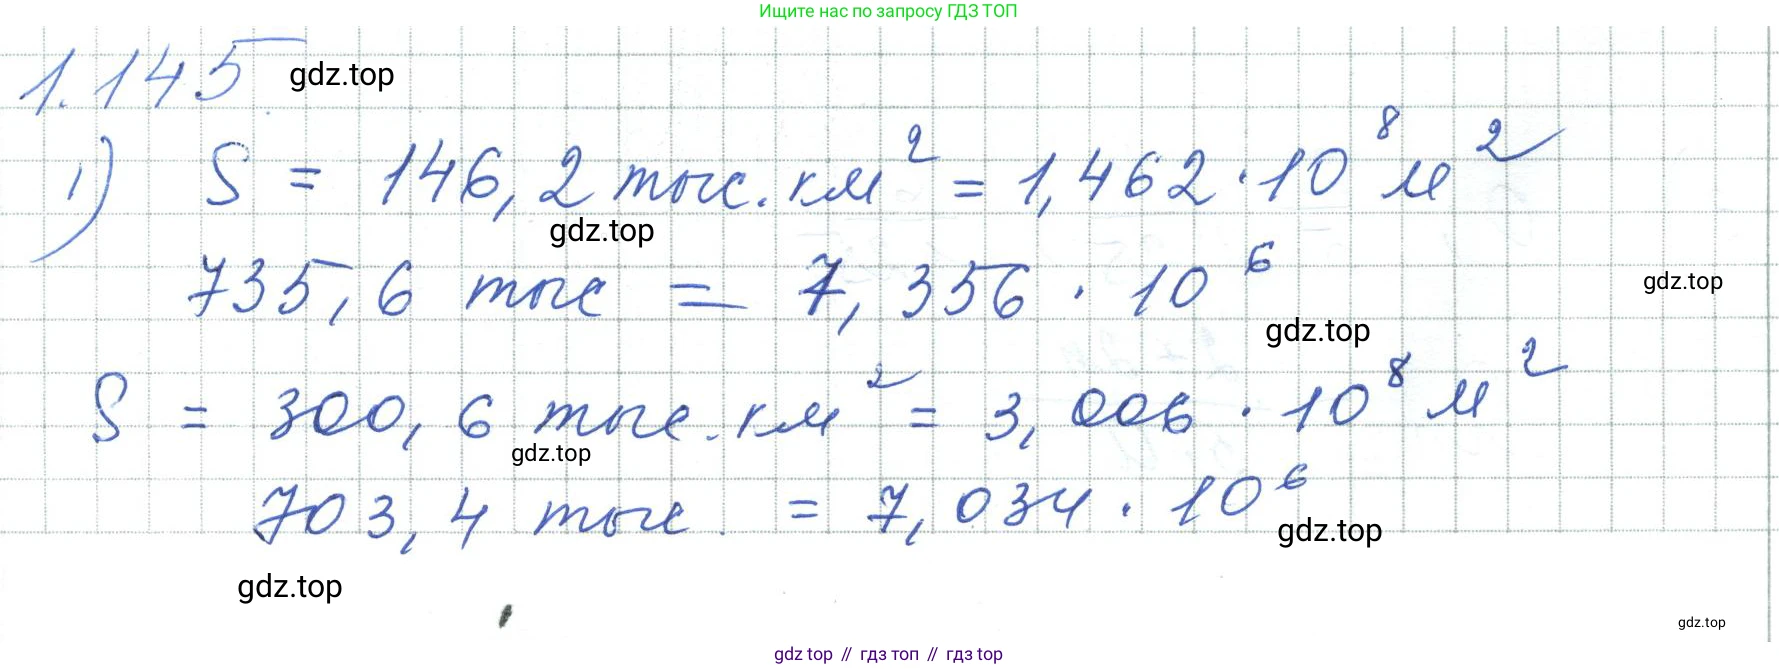 Ищите нас по запросу ГДЗ ТОП
1.145 gdz.top
1) S = 146,2 тыс. км² = 1,462 · 10⁸ м²
gdz.top
735,6 тыс = 7,356 · 10⁶
gdz.top
gdz.top
S = 300,6 тыс. км² = 3,006 · 10⁸ м²
gdz.top
703,4 тыс. = 7,034 · 10⁶
gdz.top
gdz.top
gdz.top
gdz top // гдз топ // гдз top